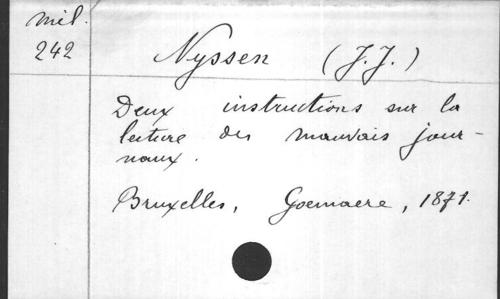 Mél.
242
Nyssen (J.J.)
Deux instructions sur la
lecture des mauvais jour-
naux.
Bruxelles, Goemaere, 1871.